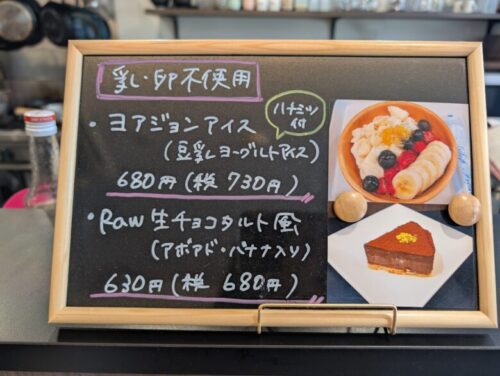 乳・卵不使用
・ヨアジョンアイス
ハチミツ
付
(豆乳ヨーグルトアイス)
680円(税 730円)
・Raw生チョコタルト風
(アボアド・バナナ入り)
630円(税 680円)